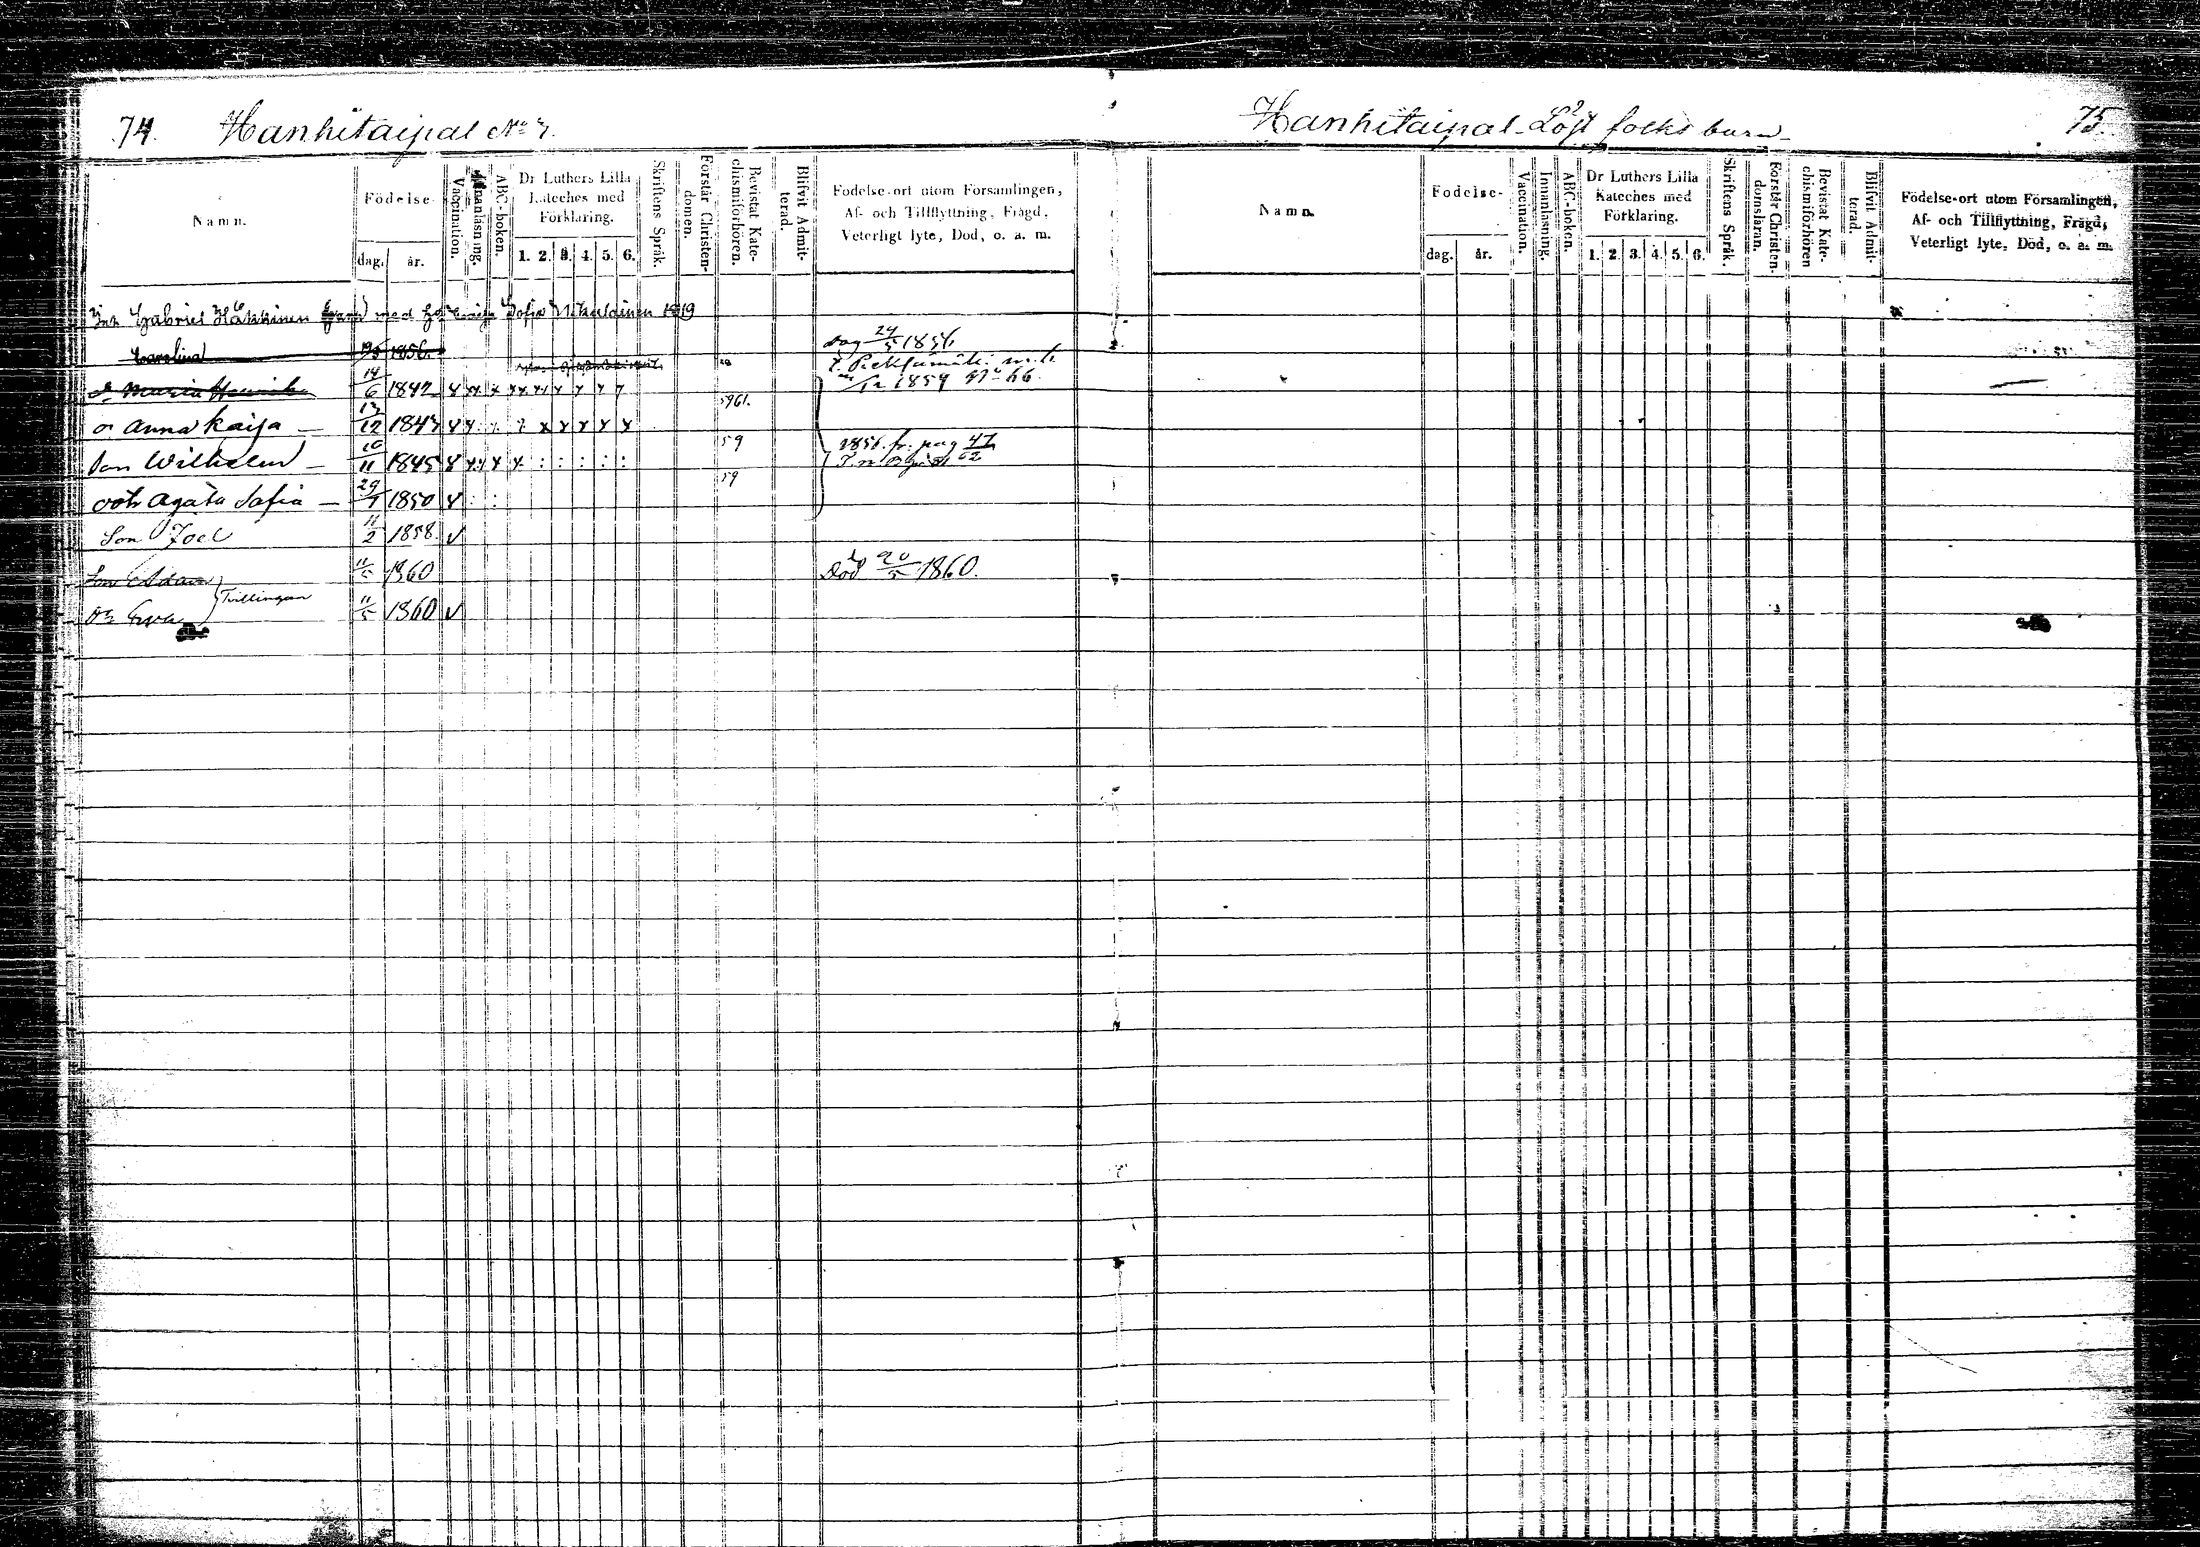 74. Hanhitaipal No 7.
Namn.
Födelse-
dag.
år.
Vaccination.
Innanläsning.
ABC-boken.
Dr Luthers Lilla Kateches med Förklaring.
1. 2. 3. 4. 5. 6.
Skriftens Språk.
Förstår Christendomen.
Bevistat Katechismiförhören.
Blifvit Admitterad.
Födelse-ort utom Församlingen,
Af- och Tillflyttning, Frägd,
Veterligt lyte, Död, o. a. m.
Gabriel Häkkinen med Sofia 1819
Carolina 1856. Dog 24/5 1856
Maria 14/6 1842 1859 No 66
Anna Kaisa 13/12 1847 61.
Son Wilhelm 10/11 1845 59 1856. fr. pag 47
dotr Agata Sofia 29/1 1850 59
Son Joel 11/2 1858.
Son Adam 11/5 1860 Död 20/5 1860.
Tvillingar
Dr Ewa 11/5 1860
Hanhitaipal Löst folks barn 75.
Namn.
Födelse-
dag.
år.
Vaccination.
Innanläsning.
ABC-boken.
Dr Luthers Lilla
Kateches med
Förklaring.
1. 2. 3. 4. 5. 6.
Skriftens Språk.
Förstår Christendomsläran.
Bevistat Katechismiförhören
Blifvit Admitterad.
Födelse-ort utom Församlingen,
Af- och Tillflyttning, Frägd,
Veterligt lyte, Död, o. a. m.